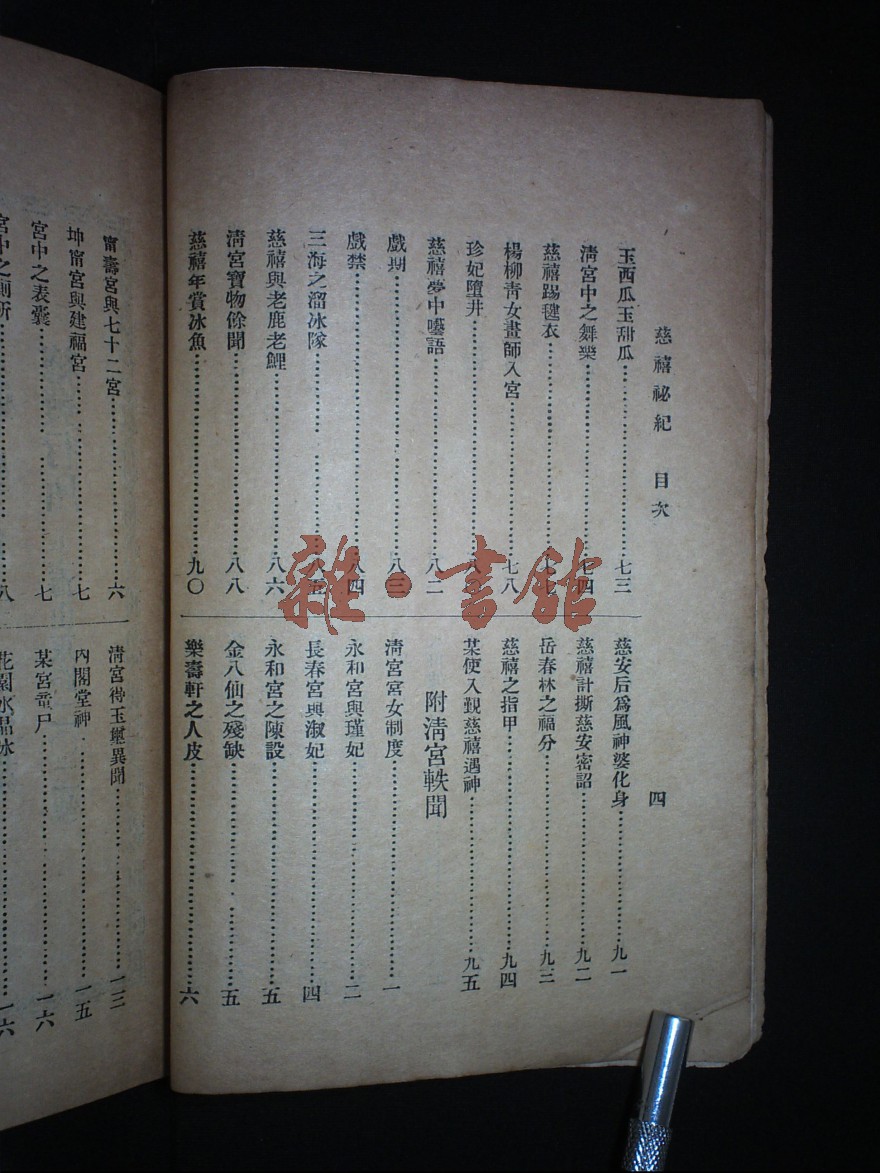 慈禧祕紀 目次 四
玉西瓜玉甜瓜……七三
淸宮中之舞樂……七四
慈禧踢毽衣……七七
楊柳靑女畫師入宮……七八
珍妃墮井……八
慈禧夢中囈語……八二
戲期……八三
戲禁……八四
三海之溜冰隊……八五
慈禧與老鹿老鯉……八六
淸宮寶物餘聞……八八
慈禧年賞冰魚……九〇
慈安后爲風神婆化身……九一
慈禧計撕慈安密詔……九二
岳春林之福分……九三
慈禧之指甲……九四
某使入覲慈禧遇神……九五
附淸宮軼聞
淸宮宮女制度……一
永和宮與瑾妃……二
長春宮與淑妃……四
永和宮之陳設……五
金八仙之殘缺……五
樂壽軒之人皮……六
甯壽宮與七十二宮……六
坤甯宮與建福宮……七
宮中之表囊……七
宮中之廁所……八
淸宮得玉璽異聞……一三
內閣堂神……一五
某宮竜尸……一六
花園水晶冰……一六
雜·書館